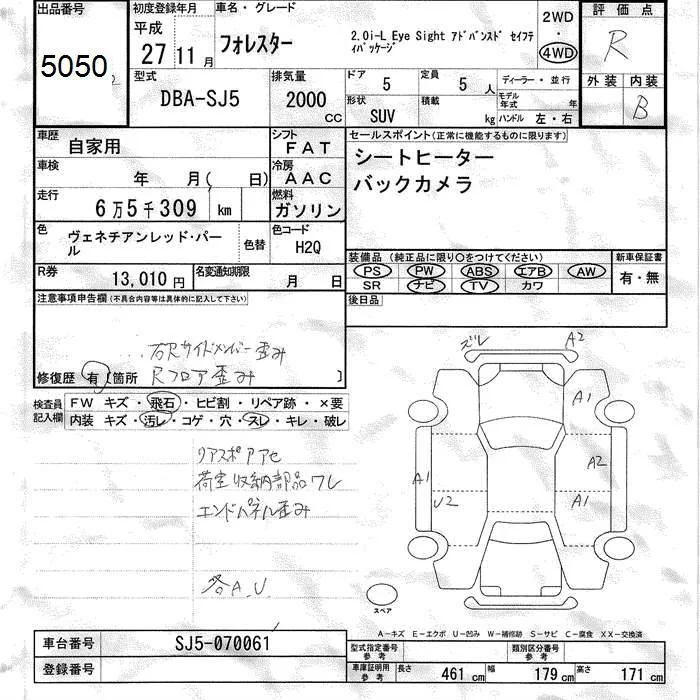 出品番号
5050 2
初度登録年月
平成
27 11月
車名・グレード
フォレスター
2.0i-L Eye Sight アドバンスド セイフティパッケージ
2WD
・
4WD
評価点
R
外装 内装
B
型式
DBA-SJ5
排気量
2000 cc
ドア 5
定員 5 人
形状 SUV
積載 kg
ディーラー・並行
モデル年式 年
ハンドル 左・右
車歴 自家用
シフト FAT
車検 年 月( 日)
冷房 AAC
走行 6万5千309 km
燃料 ガソリン
色 ヴェネチアンレッド・パール
色替
色コード H2Q
R券 13,010円
名変通知期限 月 日
セールスポイント(正常に機能するものに限ります)
シートヒーター
バックカメラ
装備品(純正品に限り○をつけてください)
PS PW ABS エアB AW
SR ナビ TV カワ
新車保証書
有・無
後日品
注意事項申告欄(不具合内容等は具体的に記入して下さい)
右Rサイドメンバー歪み
修復歴 有 〔箇所 Rフロア歪み 〕
検査員記入欄
FW キズ・飛石・ヒビ割・リペア跡・×要
内装 キズ・汚レ・コゲ・穴・スレ・キレ・破レ
リアスポアアセ
荷室収納部品ワレ
エンドパネル歪み
各A.U.
ズレ A2
A1
A2
A1
U2
A1
スペア
A-キズ E-エクボ U-凹み W-補修跡 S-サビ C-腐食 XX-交換済
車台番号 SJ5-070061
登録番号
型式指定番号 参考
類別区分番号 参考
車庫証明用 参考
長さ 461 cm 幅 179 cm 高さ 171 cm